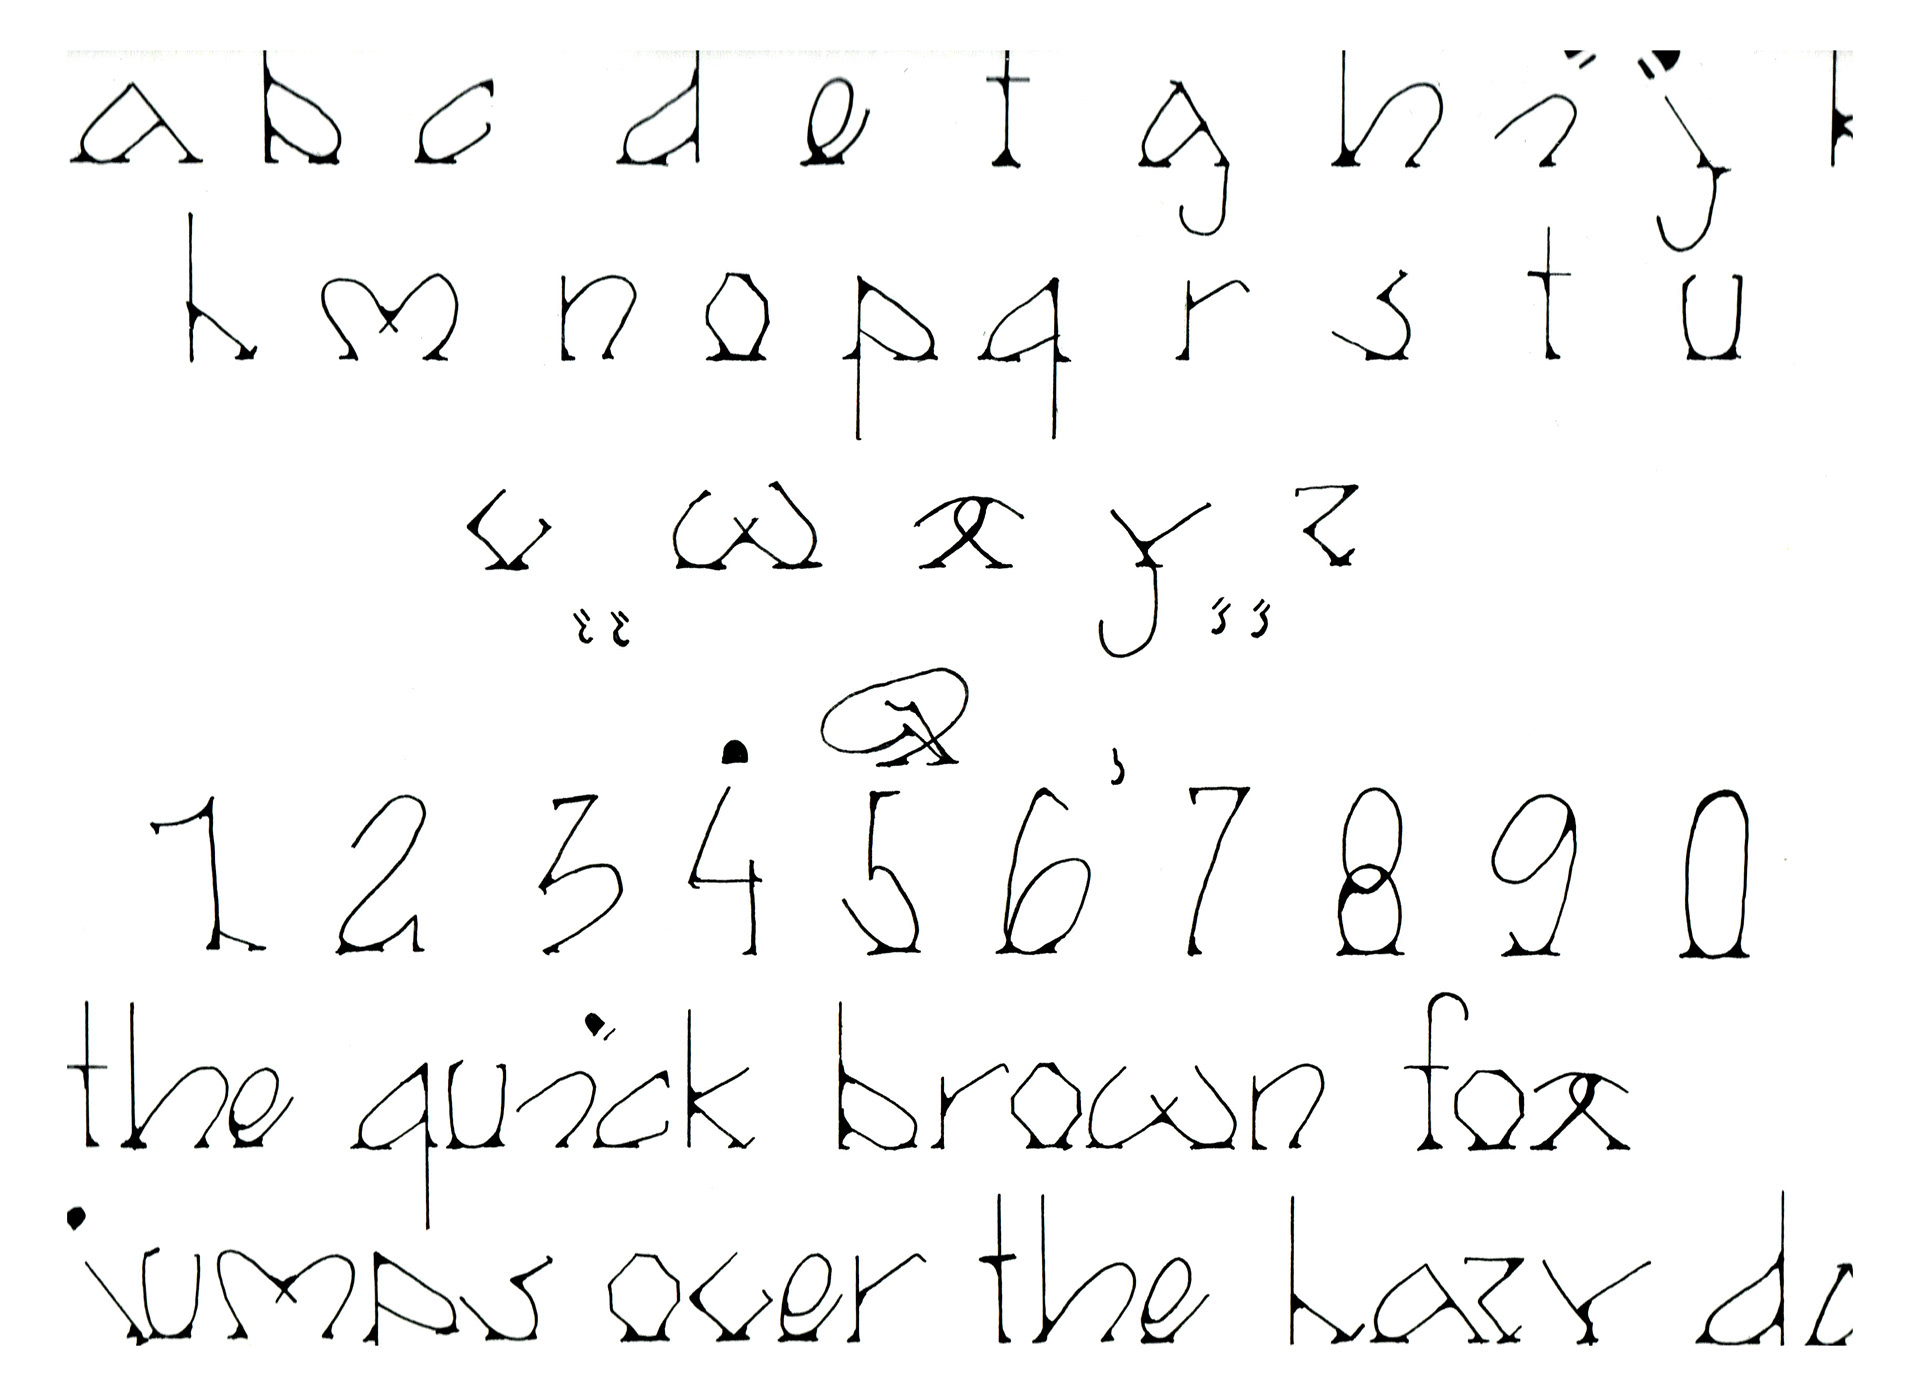 a b c d e f g h i j k
l m n o p q r s t u
v w x y z
“ ”
. & ,
1 2 3 4 5 6 7 8 9 0
the quick brown fox
jumps over the lazy do